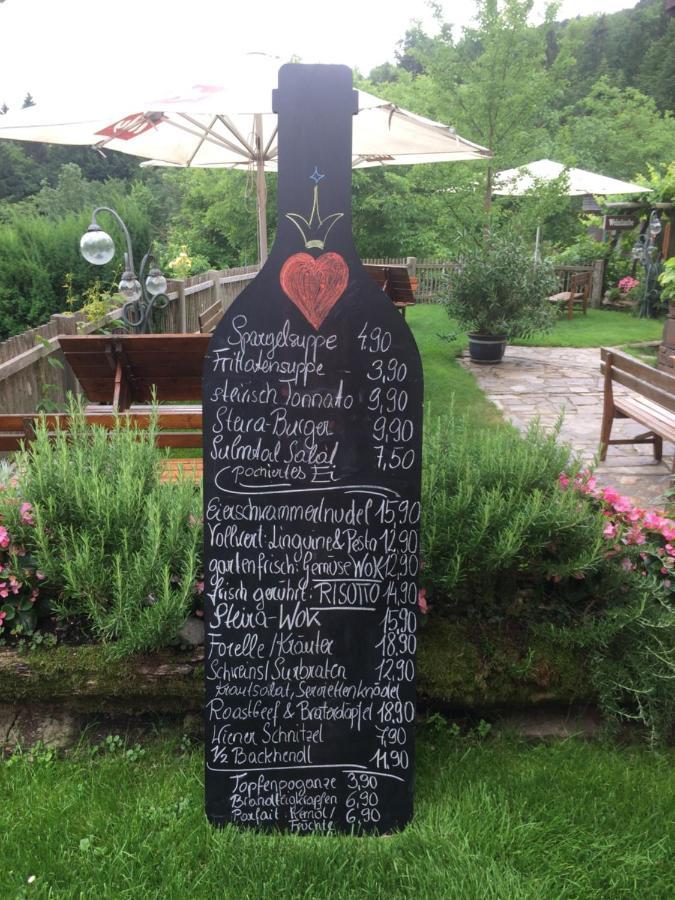 Spargelsuppe 4.90
Frittatensuppe 3,90
steirisch Tonnato 9,90
Steira-Burger 9,90
Sulmtal Salat 7,50
(pochiertes Ei
Eierschwammerlnudel 15,90
Vollwert: Linguine & Pesto 12,90
gartenfrisch: Gemüse WOK 12,90
frisch gerührt: RISOTTO 14,90
Steira-Wok 15,90
Forelle/Kräuter 18,90
Schweins/Surbraten 12,90
Krautsalat, Serviettenknödel
Roastbeef & Braterdäpfel 18,90
Wiener Schnitzel 7,90
1/2 Backhendl 11,90
Topfenpoganze 3,90
Brandteigkrapfen 6,90
Parfait Kernöl/ 6,90
Früchte